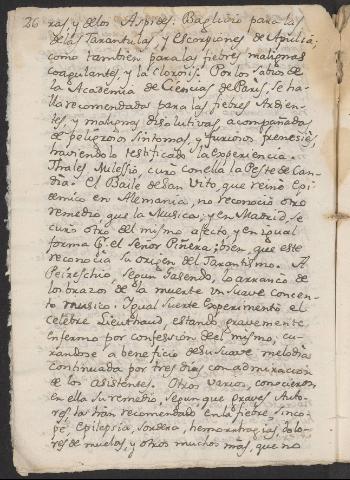 26 ras y de los Aspides. Baglivio para las
de las Tarantulas, y Escorpiones de Apulia;
como tambien para las fiebres malignas
coagulantes, y la Clorosis. Por los sabios de
la Academia de Ciencias de Paris, se ha-
lla recomendada para las fiebres Ardien-
tes, y malignas disolutivas, acompañadas
de peligrosos sintomas, y furiosos frenesies,
haviendolo testificado la experiencia.
Thales Milesio, curó con ella la Peste de Can-
dia. El Baile de San Vito, que reinó Epi-
demico en Alemania, no reconoció otro
remedio que la Musica; y en Madrid, se
curó otro del mismo afecto, y en igual
forma por el Señor Piñera; bien, que este
reconocia su origen del Tarantismo. A
Peireschio, segun Gasendo, lo arrancó de
los brazos de la muerte un suave concen-
to musico. Igual suerte experimentó el
celebre Lieuthaud, estando gravemente
enfermo por confession de el mismo; cu-
randose a beneficio de su suave melodia
continuada por tres dias con admiracion
de los asistentes. Otros varios, conocieron
en ella su remedio, segun que graves Auto-
res la han recomendado en la fiebre, sinco-
pe, epilepsia, sordera, hemorragias, dolo-
res de muelas, y otros muchos mas, que no